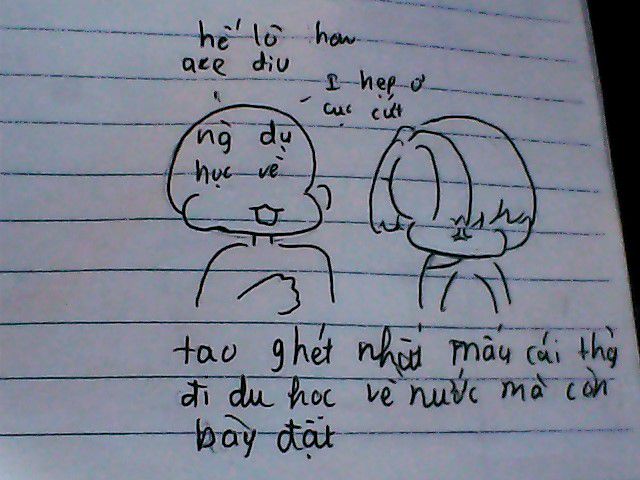 hế lô hao
are diu
I hẹp ơ
cục cứt
ng dụ
học về
tao ghét nhất mấy cái thg
đi du học về nước mà còn
bày đặt